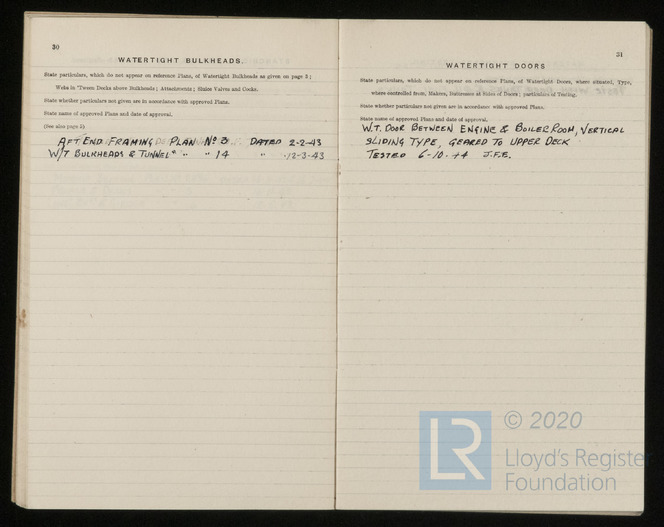 30
WATERTIGHT BULKHEADS.
State particulars, which do not appear on reference Plans, of Watertight Bulkheads as given on page 3 ;
Webs in 'Tween Decks above Bulkheads ; Attachments ; Sluice Valves and Cocks.
State whether particulars not given are in accordance with approved Plans.
State name of approved Plans and date of approval.
(See also page 5)
AFT END FRAMING PLAN No 3 DATED 2-2-43
W/T BULKHEADS & TUNNEL " " " 14 " 12-3-43
31
WATERTIGHT DOORS
State particulars, which do not appear on reference Plans, of Watertight Doors, where situated, Type,
where controlled from, Makers, Buttresses at Sides of Doors ; particulars of Testing.
State whether particulars not given are in accordance with approved Plans.
State name of approved Plans and date of approval.
W.T. DOOR BETWEEN ENGINE & BOILER ROOM, VERTICAL
SLIDING TYPE, GEARED TO UPPER DECK
TESTED 6-10-44 J.F.E.
LR
© 2020
Lloyd's Register
Foundation